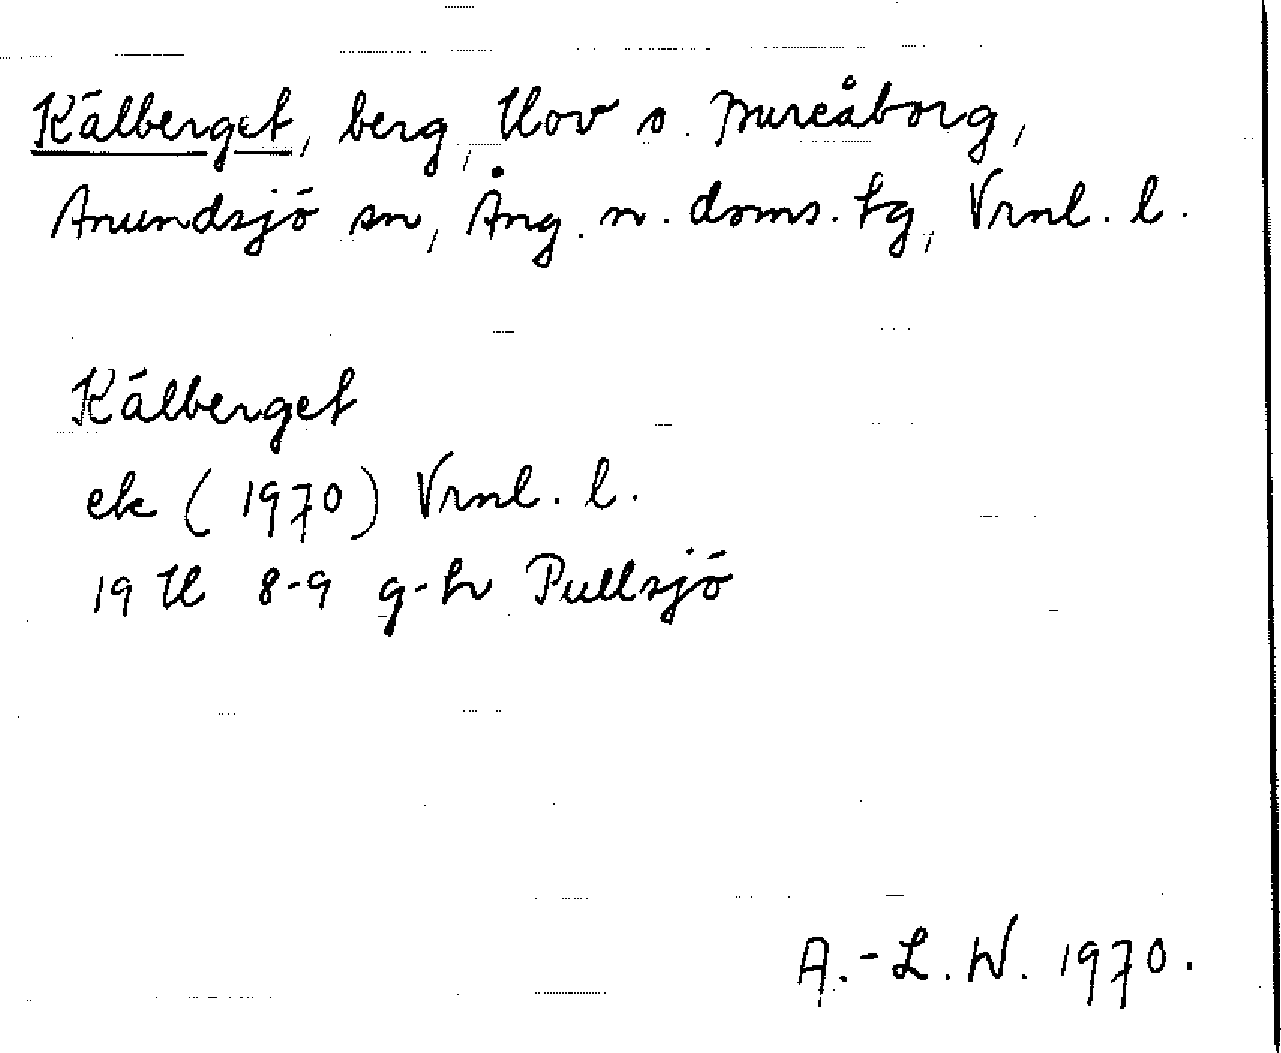 Kälberget, berg, VoV o. Mureåborg,
Anundsjö sn, Ång. n. doms. tg, Vrnl. l.
Kälberget
ek (1970) Vrnl. l.
19 H 8-9 g-h Pullsjö
A.-L. W. 1970.